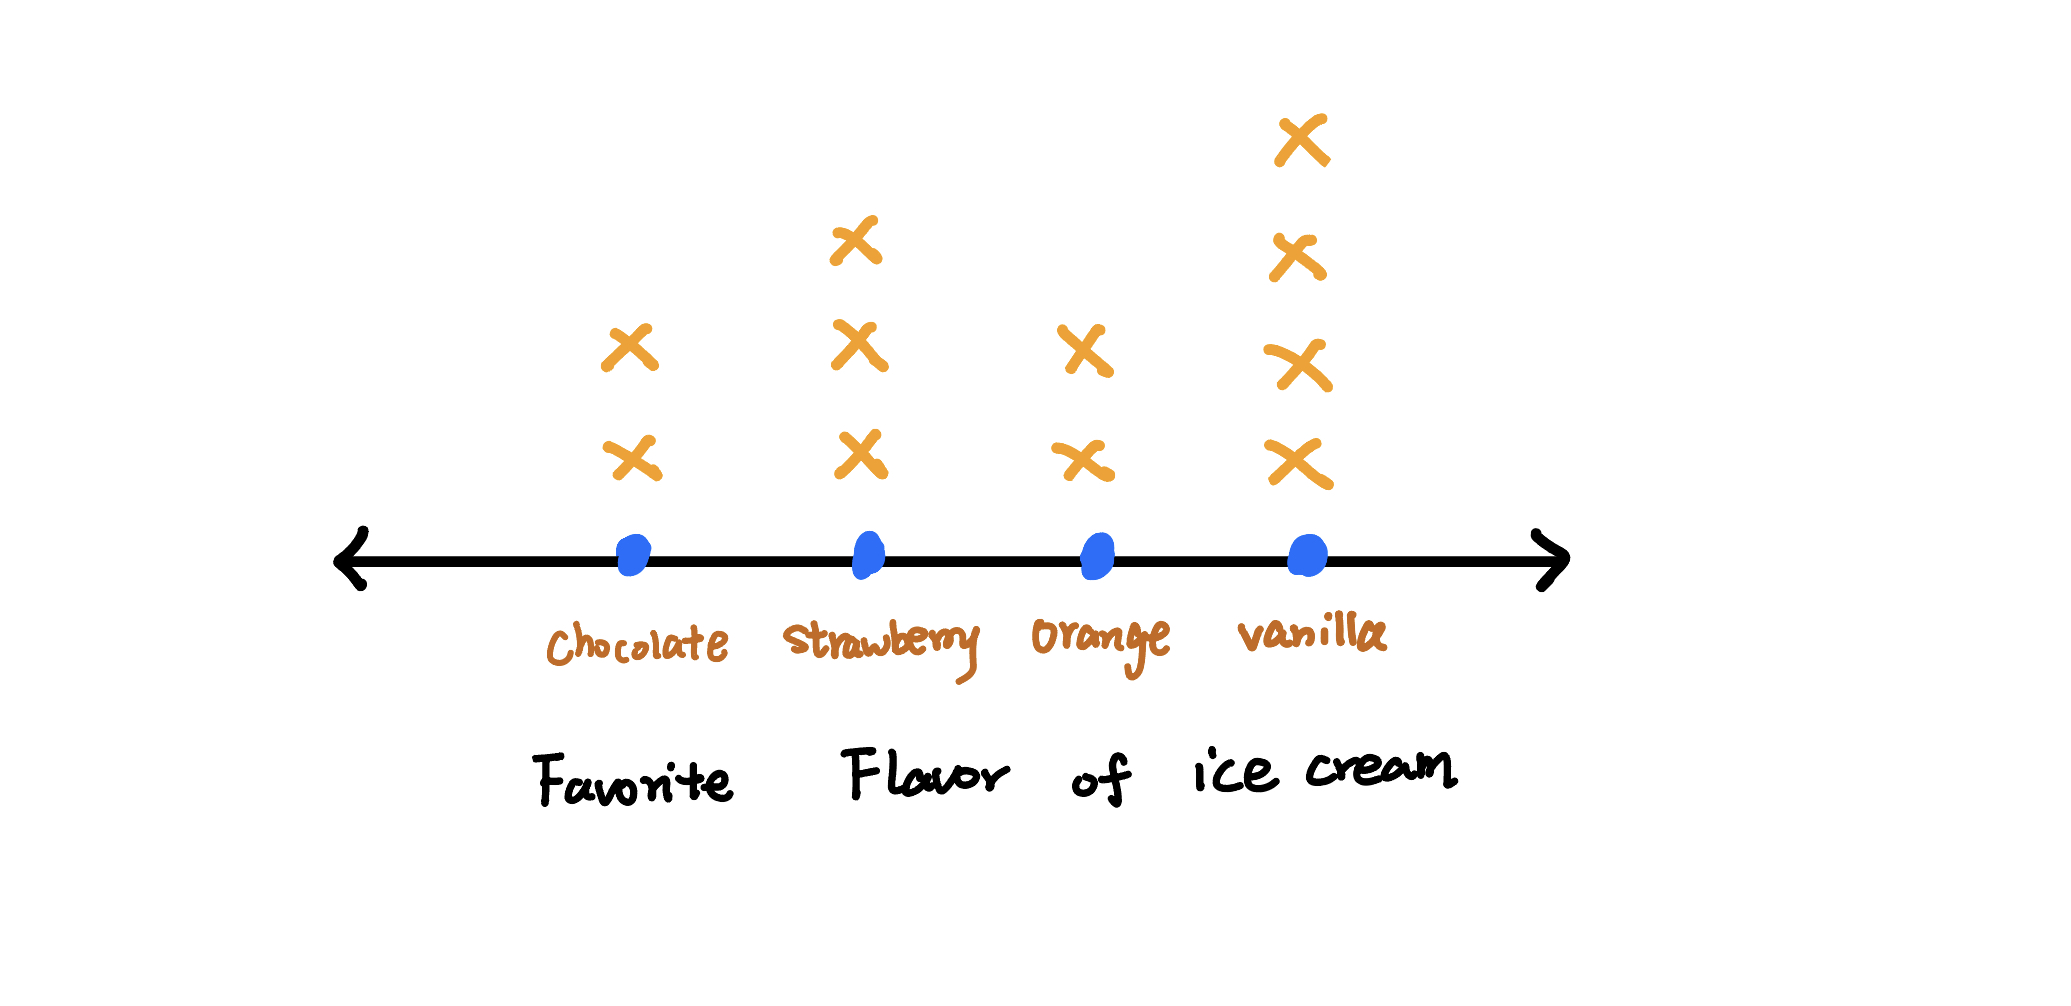 chocolate strawberry orange vanilla
Favorite Flavor of ice cream